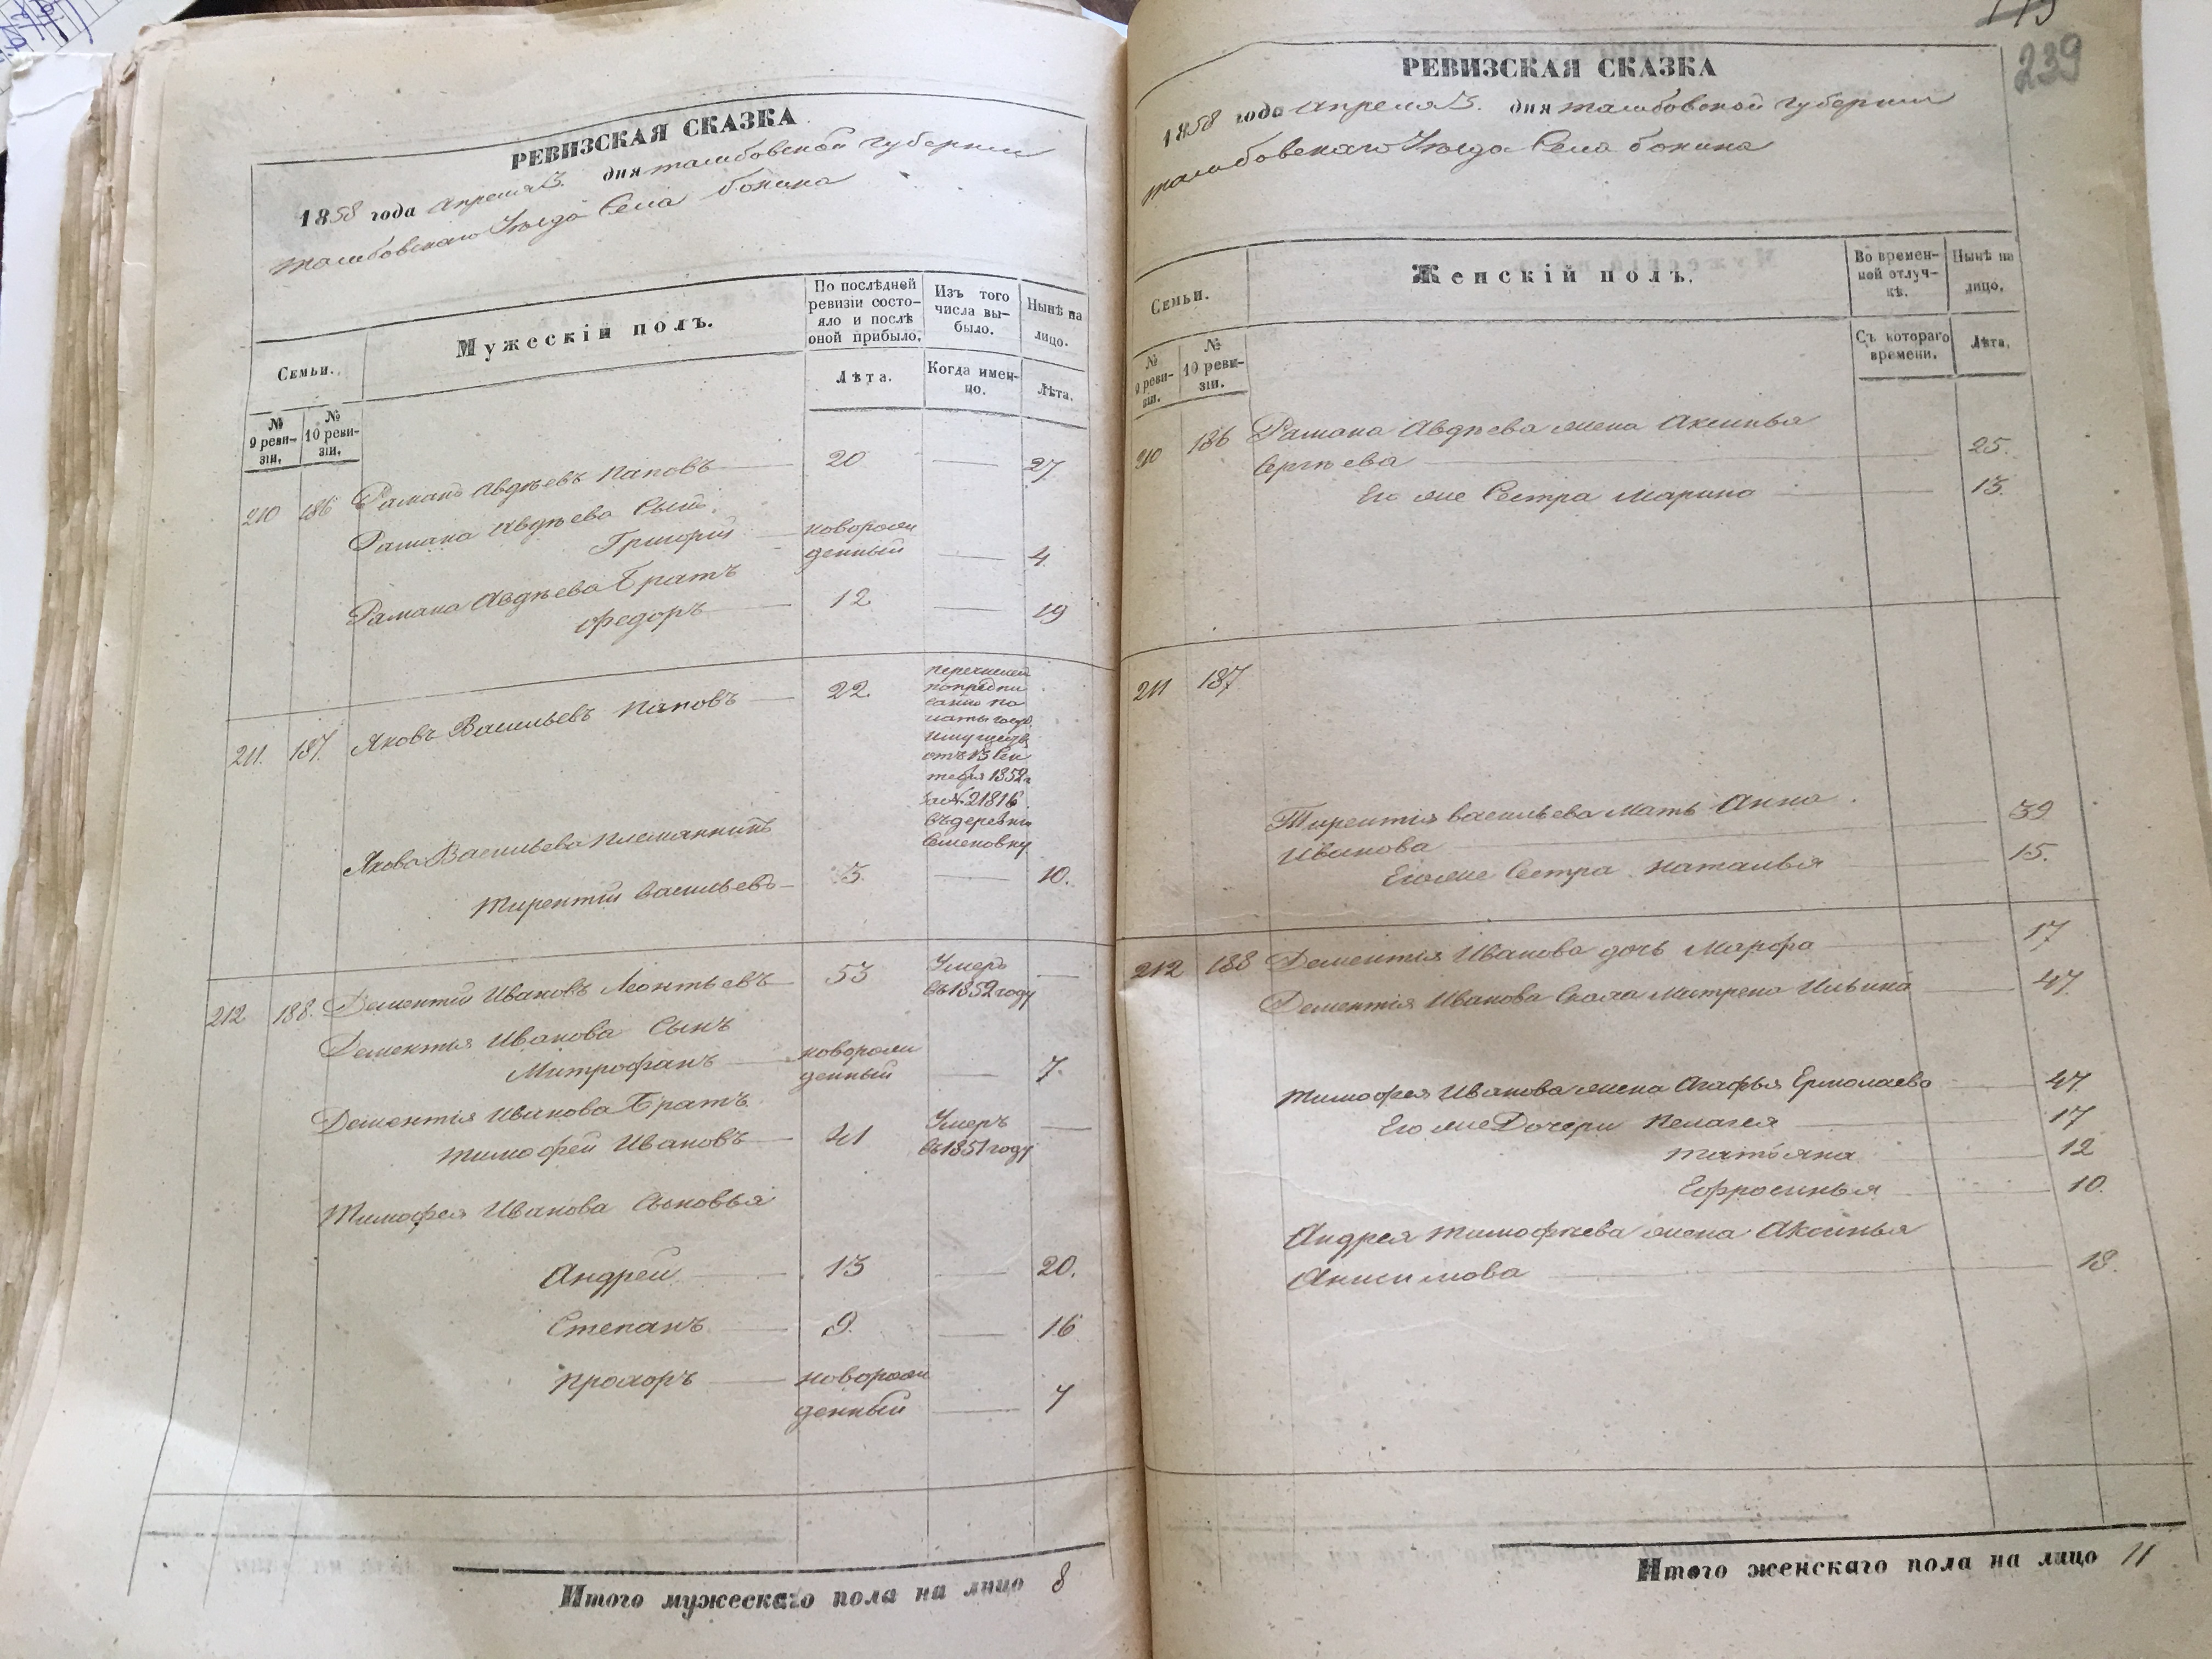 РЕВИЗСКАЯ СКАЗКА
1858 года Апреля 3. дня тамбовской губернии
тамбовскаго Уѣзда Села бокина
Семьи.
Мужескій полъ.
По послѣдней
ревизіи состо-
яло и послѣ
оной прибыло.
Изъ того
числа вы-
было.
Нынѣ на
лицо.
№
9 реви-
зіи.
№
10 реви-
зіи.
Лѣта.
Когда имен-
но.
Лѣта.
210 186 Рамано Авдѣевъ Паповъ 20 27
Рамана Авдѣева Сынъ.
Григорій новорож
денный 4
Рамана Авдѣева Братъ
Федоръ 12 19
211. 187. Яковъ Васильевъ Паповъ 22.
перечислен
попредпи
санію па
латы госуд.
имуществ
отъ 13 Сен
тебря 1852 г
за № 21816
въ деревню
Семеновку
Якова Васильева племянникъ
Тирентій Васильевъ 3. 10.
212 188. Дементій Ивановъ Леонтьевъ 53 Умеръ
въ 1852 году
Дементія Иванова Сынъ
Митрофанъ новорож
денный 7.
Дементія Иванова Братъ
Тимофей Ивановъ 41 Умеръ
въ 1851 году
Тимофея Иванова Сыновья
Андрей 13 20.
Степанъ 9. 16
Прохоръ новорож
денный 7
Итого мужескаго пола на лицо 8
239
РЕВИЗСКАЯ СКАЗКА
1858 года Апреля 3. дня тамбовской губернии
тамбовскаго Уѣзда Села бокина
Семьи.
Женскій полъ.
Во времен-
ной отлуч-
кѣ.
Нынѣ на
лицо.
№
9 реви-
зіи.
№
10 реви-
зіи.
Съ котораго
времени.
Лѣта.
210 186 Рамана Авдѣева жена Аксинья
Сергѣева 25.
Его же Сестра Марина 13.
211 187
Тирентія Васильева Мать Анна
Иванова 39
Его же Сестра Наталья 15.
212 188 Дементія Иванова дочь Марфа 17
Дементія Иванова Сноха Митрена Ильина 47.
Тимофея Иванова жена Агафья Ермолаева 47
Его же Дочери Пелагея 17
Татьяна 12
Ефросинья 10.
Андрея Тимофеева жена Аксинья
Анисимова 18.
Итого женскаго пола на лицо 11